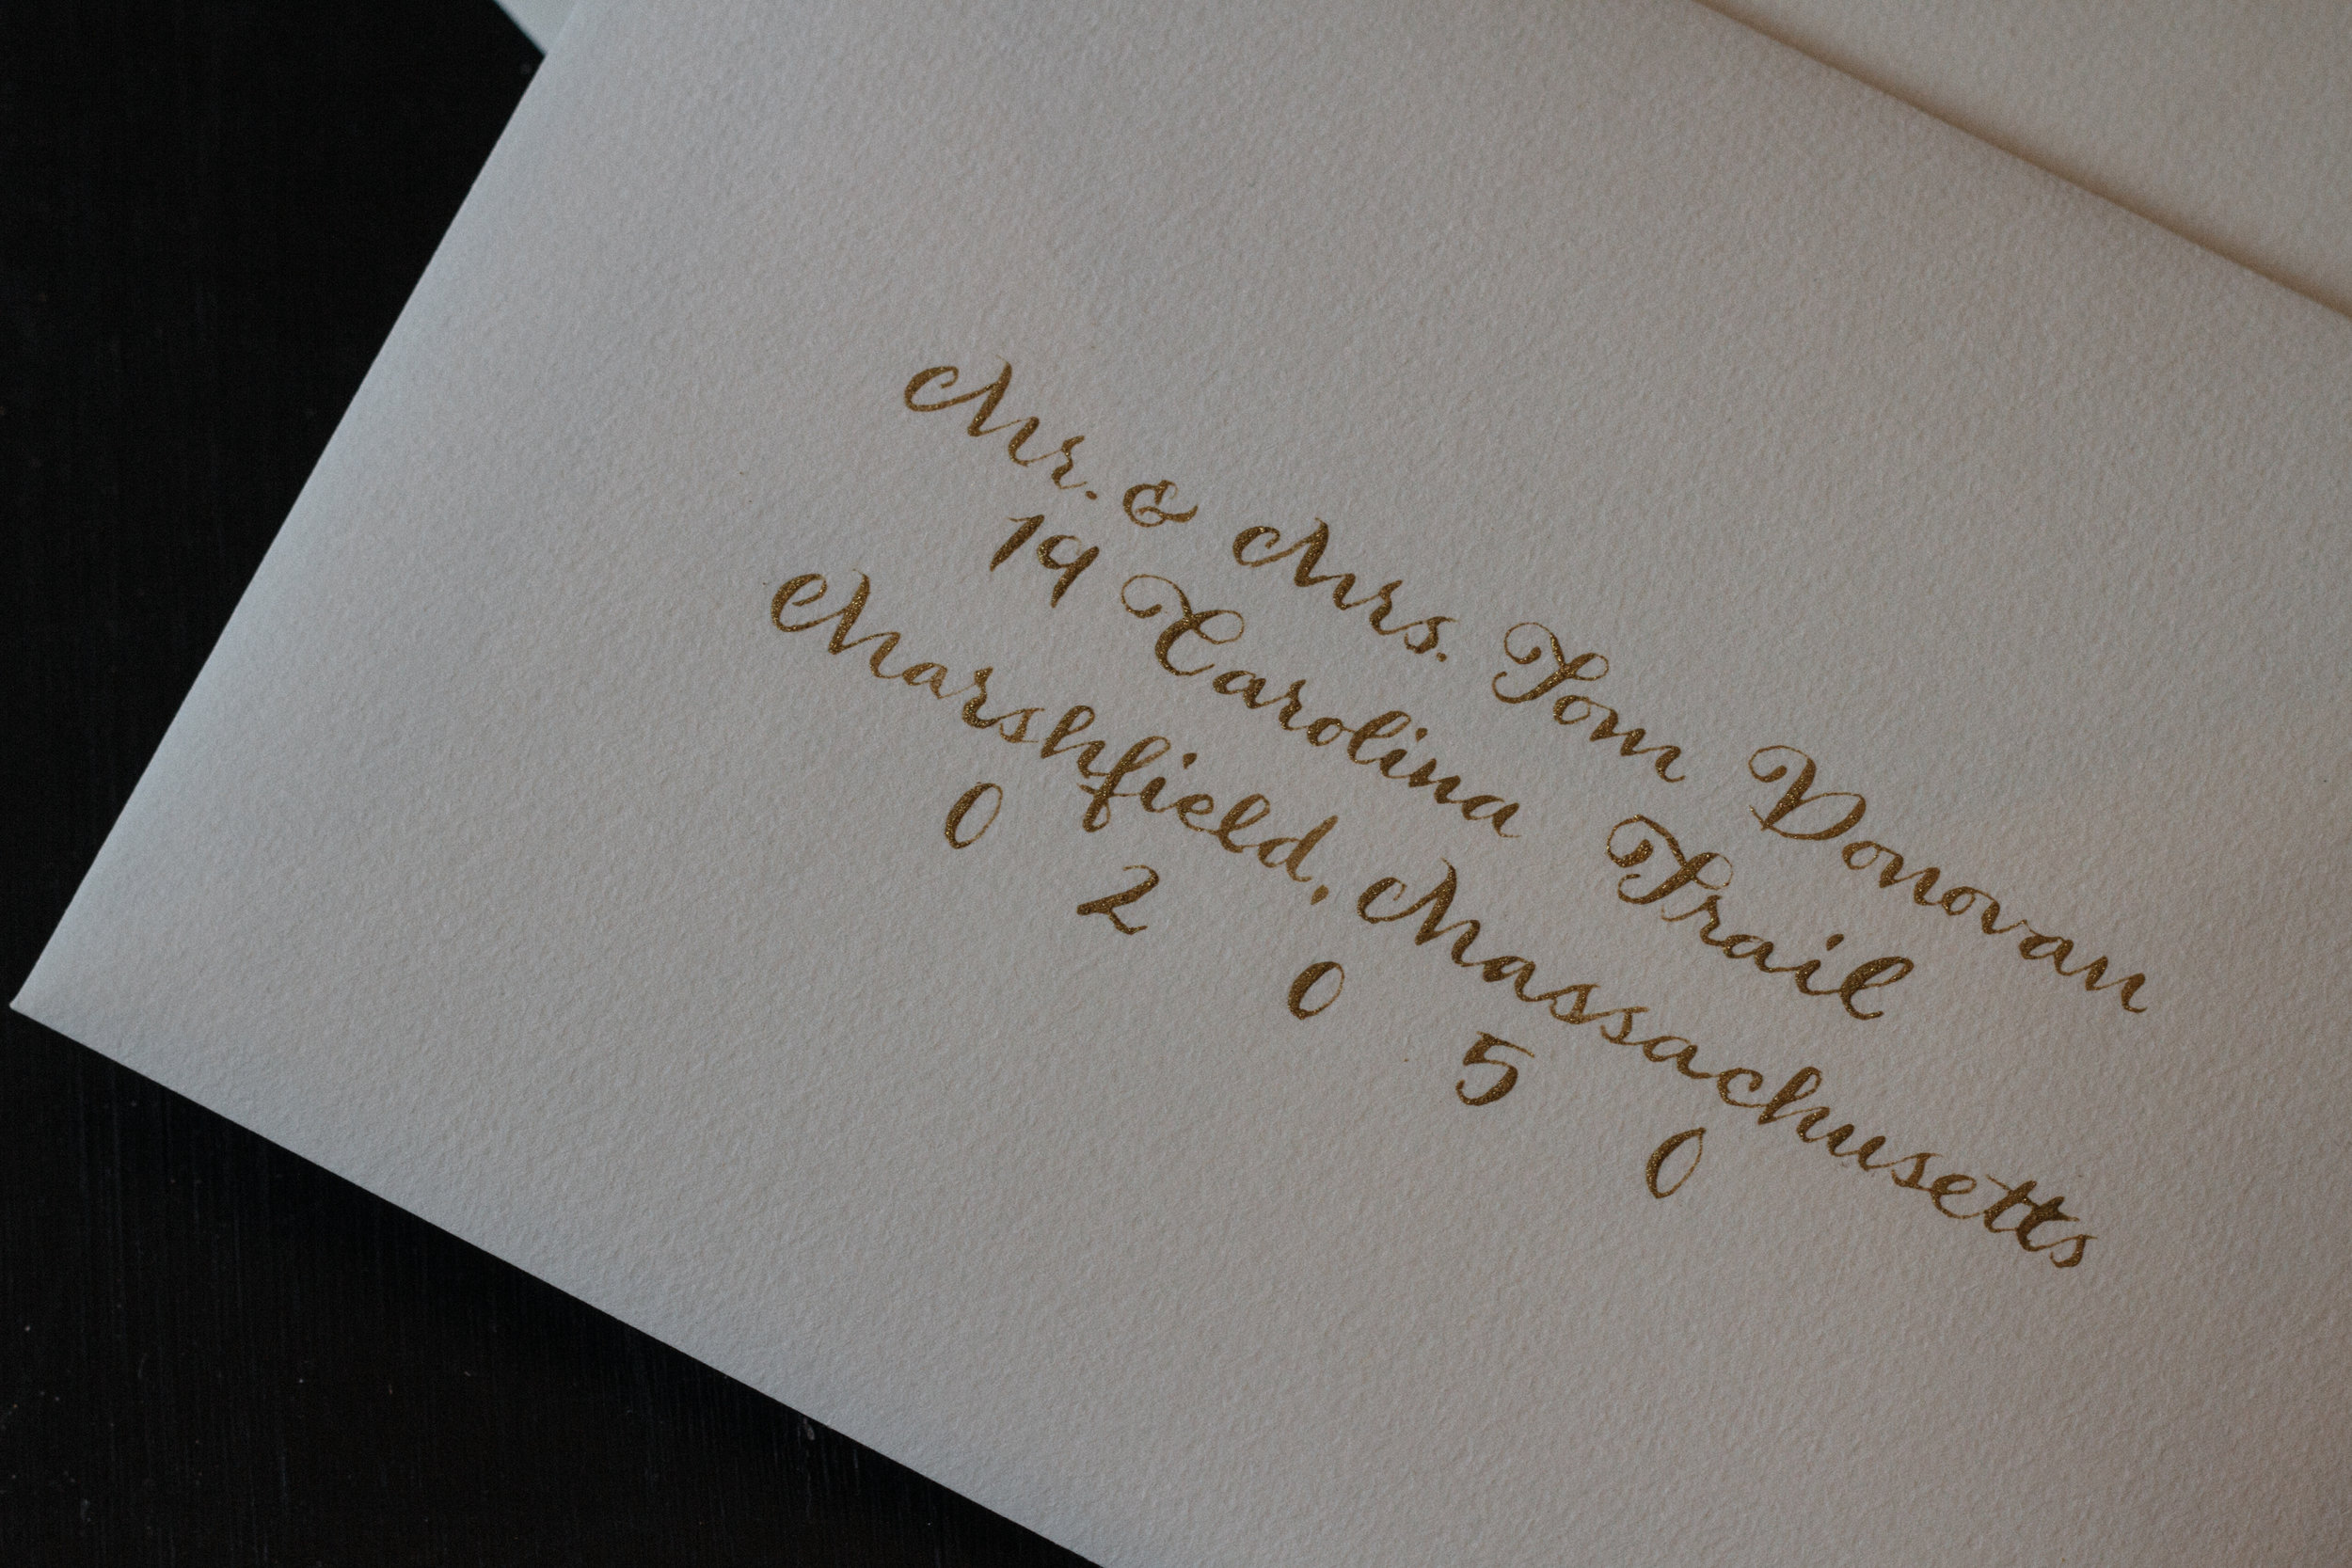 Mr. & Mrs. Tom Donovan
19 Carolina Trail
Marshfield, Massachusetts
0 2 0 5 0